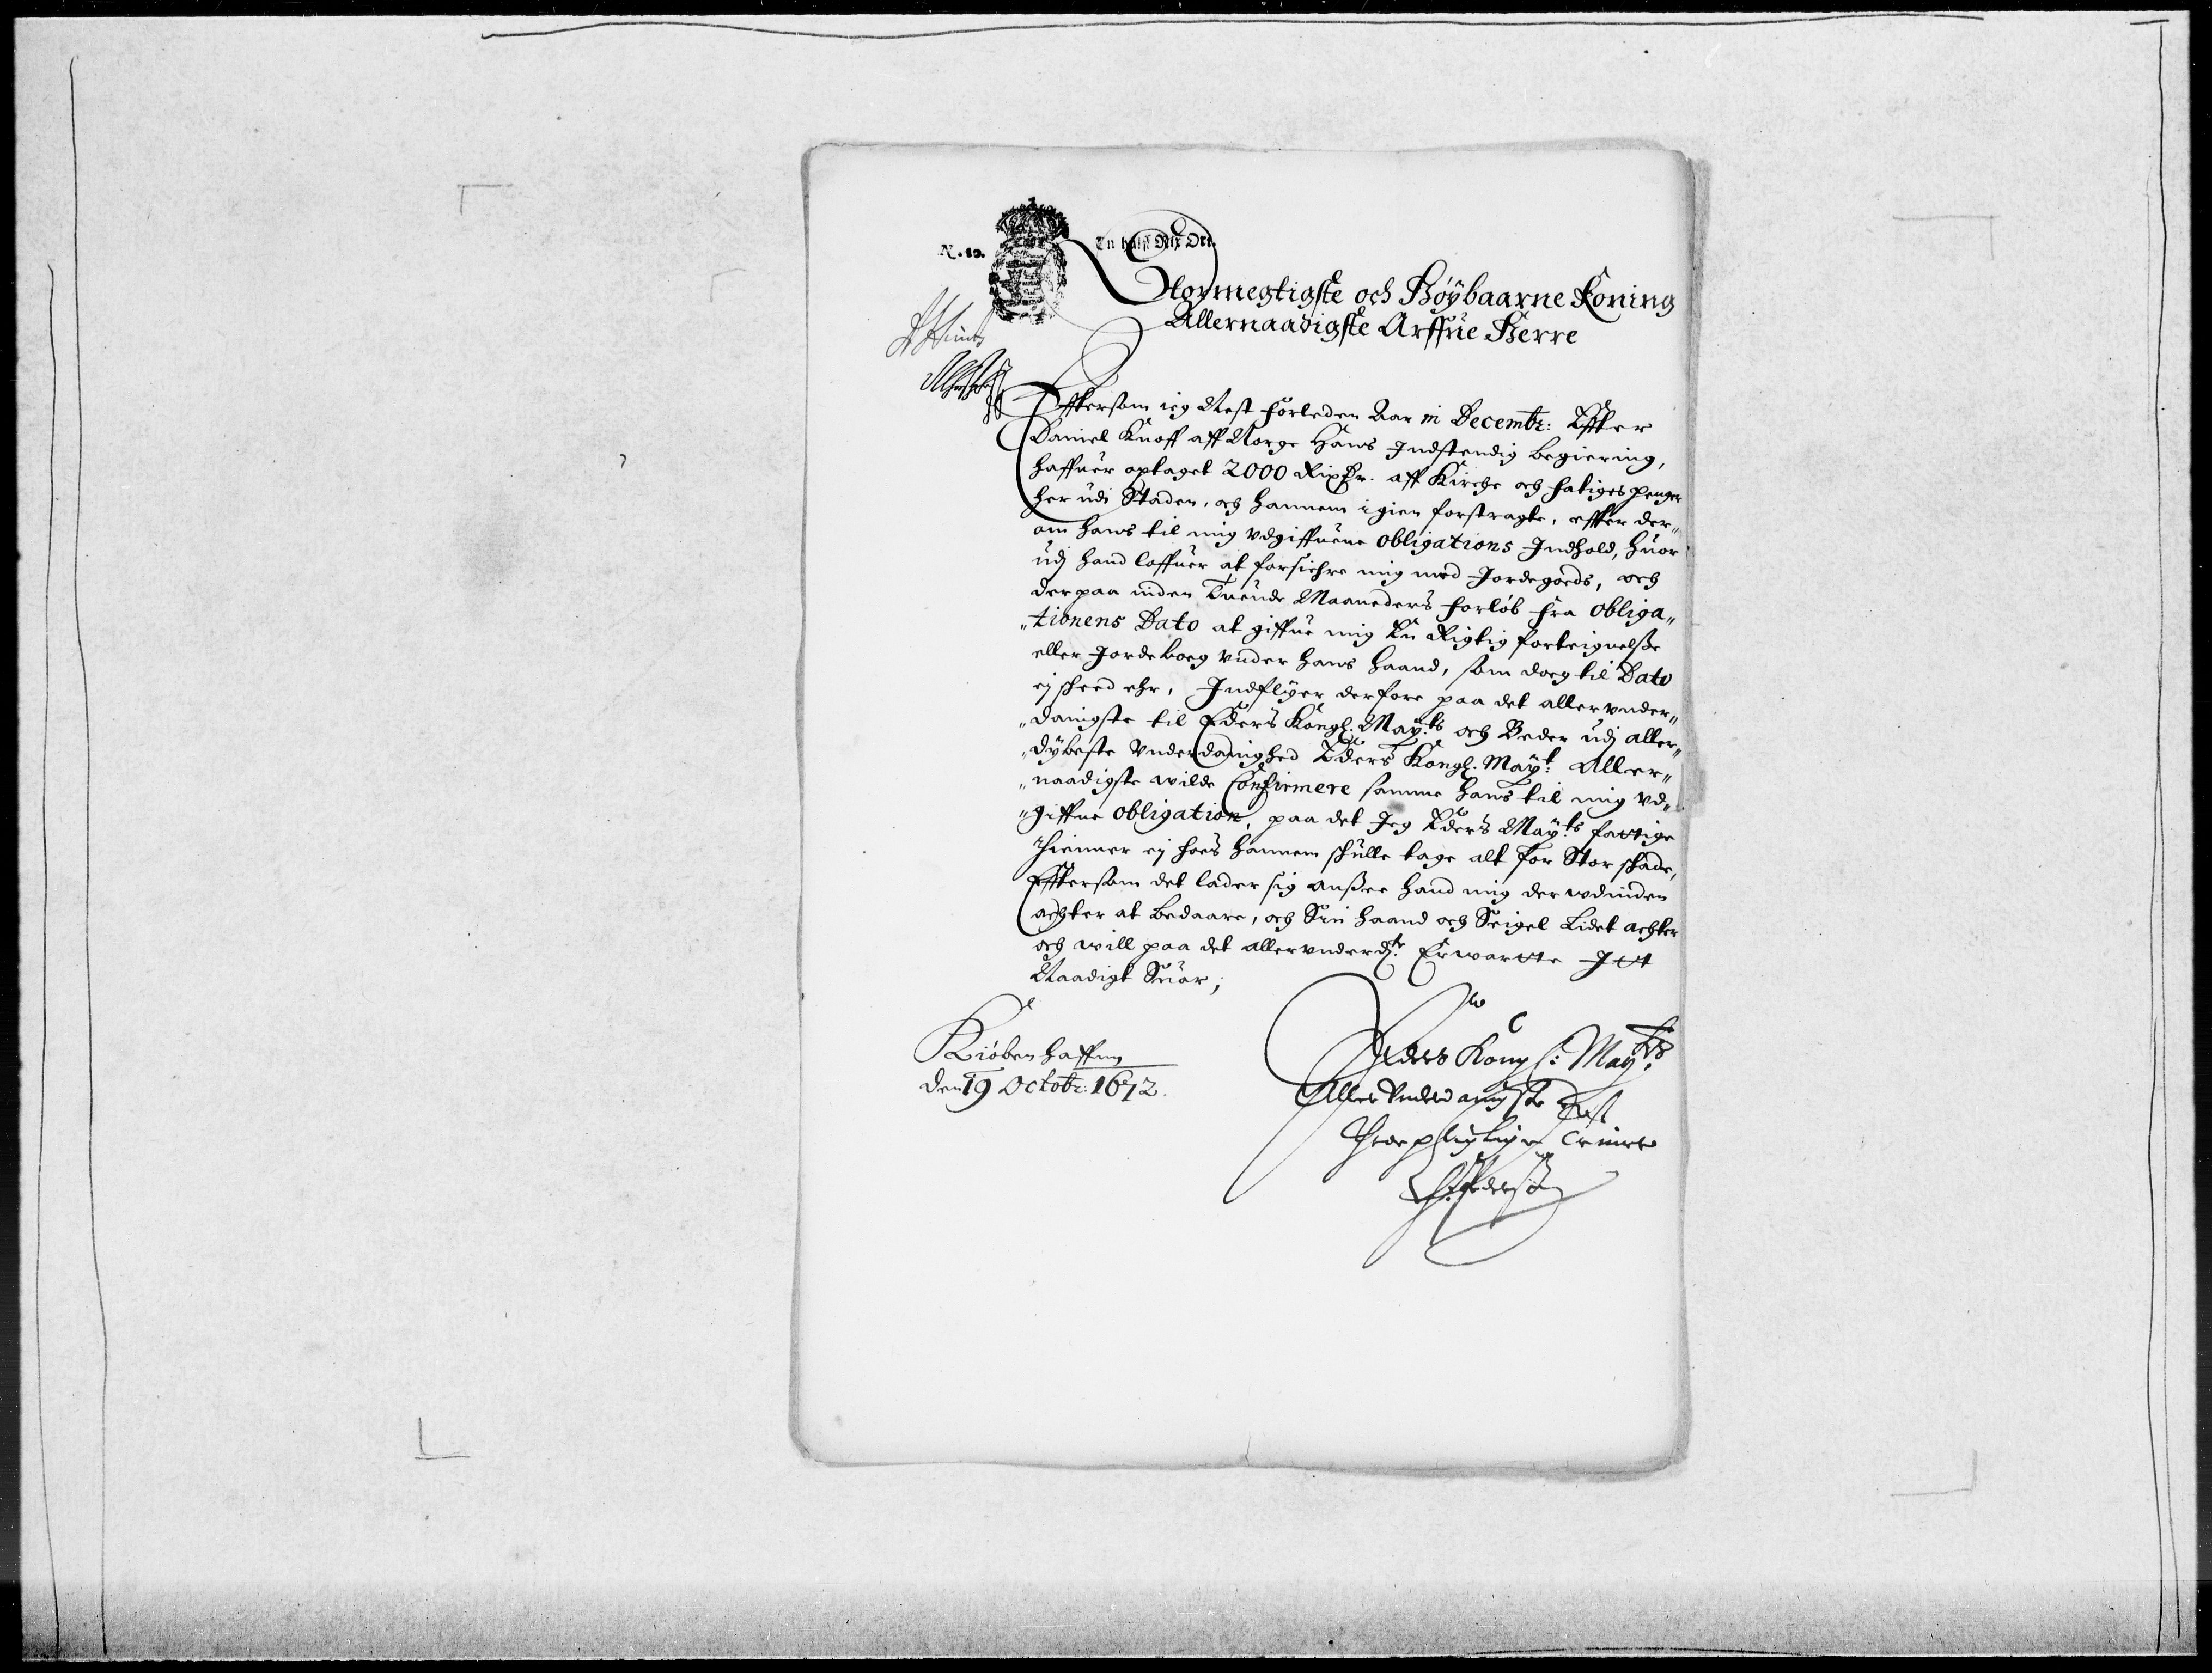 N. 10.
En halff Rix Ort.
Stormegtigste och Høybaarne Koning
Allernaadigste Arffue Herre
Effttersom ieg Nest forleden Aar in Decembr: Effter
Daniel Knoff aff Norge Hans Indstendig begiering,
haffuer optaget 2000 Rixdr. aff Kirche och fatiges penger
her udi Staden, och hannem igien forstragte, effter der„
om hans til mig vdgiffuene obligations Indhold, huor
udj hand loffuer at forsichre mig med Jordegoeds, och
der paa inden Tuende Maaneders forløb fra obliga„
„tionens Dato at giffue mig En Rigtig forteignelsse
eller Jordeboeg vnder hans haand, som doeg til Dato
ej scheed ehr, Indflyer derfore paa det allervnder„
„danigste til Eders Kongl. May.ts och Beder udj aller„
„dybeste Vnderdanighed Eders Kongl. Mayt: Aller„
„naadigste wilde Confirmere samme hans til mig vd„
„giffne obligation, paa det Jeg Eders May.ts fattige
thienner ej hoes hannem schulle tage alt for Stor schade,
Efftersom det lader sig ansee hand mig der wdinden
achter at bedaare, och Sin haand och Seigel Lidet achter
och will paa det allervnderd.ste Erwartte Itt
Naadigt Suar;
Kiøbenhaffn
den 19 Octobr: 1672.
Eders Kongl: May.ts
Aller Vnderdanigste
Throepligtigste Tienere